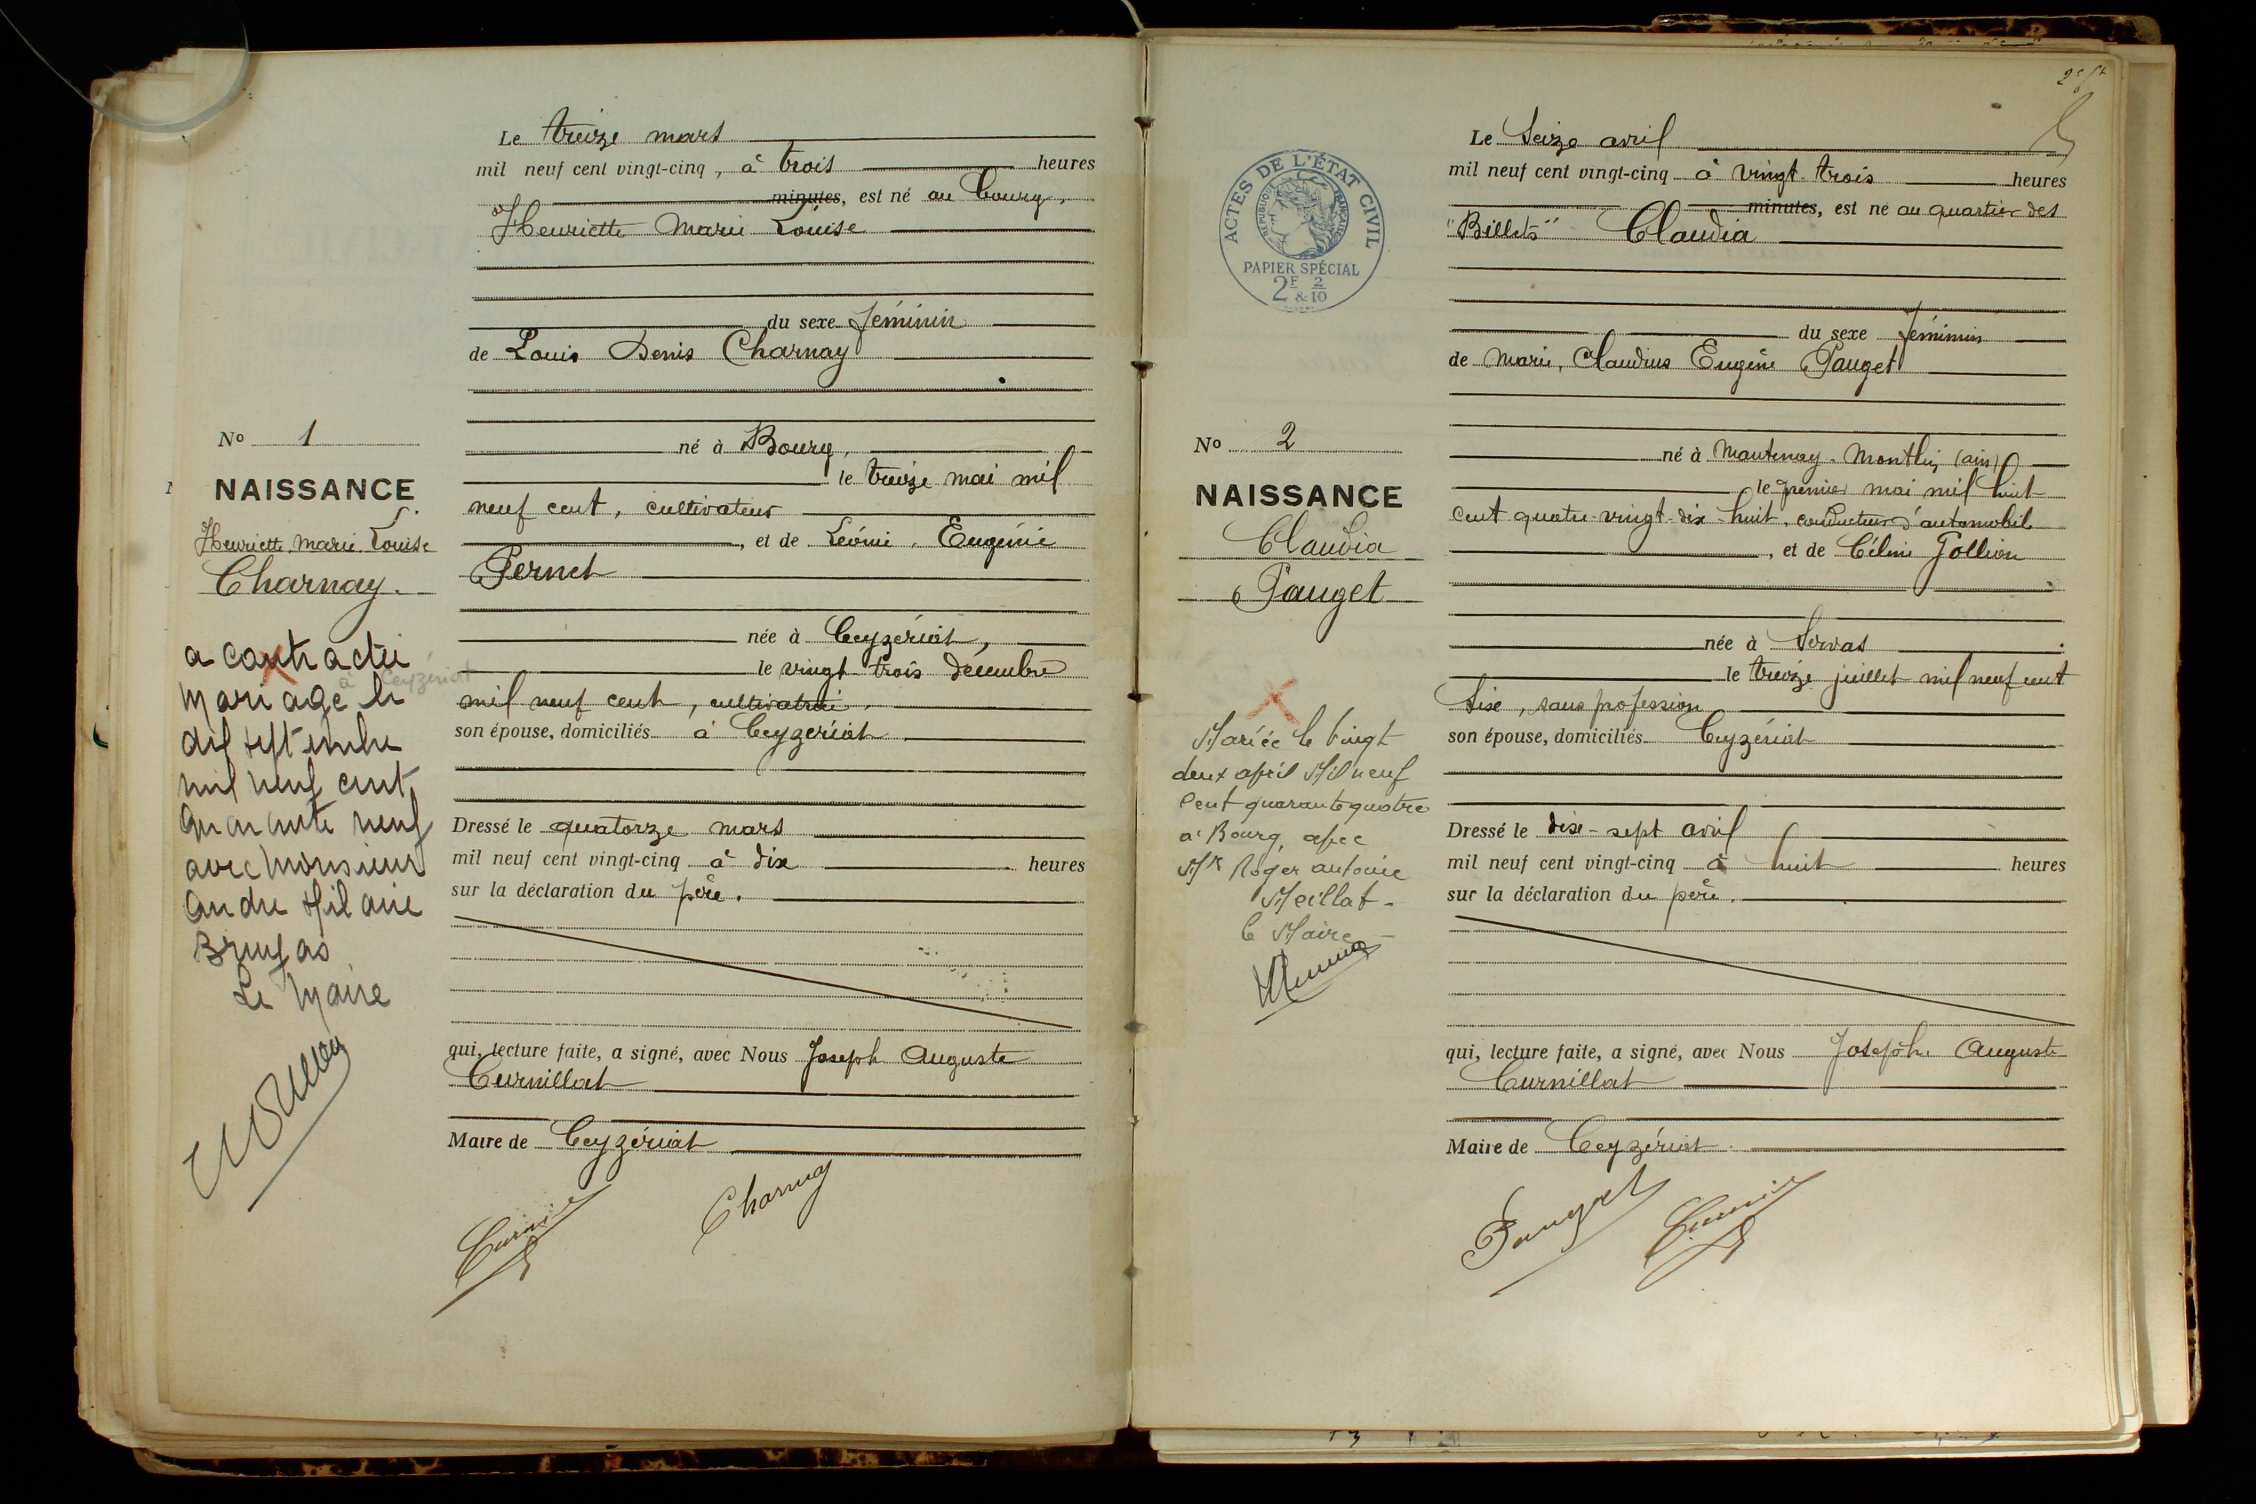 Le treize mars
mil neuf cent vingt-cinq, à trois heures
minutes, est né au bourg,
Henriette Marie Louise
du sexe féminin
de Louis Denis Charnay
né à Bourg,
le treize mai mil
neuf cent, cultivateur
, et de Léonie, Eugénie
Pernet
née à Ceyzériat,
le vingt trois décembre
mil neuf cent, cultivatrice,
son épouse, domiciliés à Ceyzériat
Dressé le quatorze mars
mil neuf cent vingt-cinq à dix heures
sur la déclaration du père.
qui, lecture faite, a signé, avec Nous Joseph Auguste
Curnillat
Maire de Ceyzériat
Charnay
No 1
NAISSANCE
Henriette Marie Louise
Charnay.
a contracté
à Ceyzériat
mariage le
dix septembre
mil neuf cent
quarante neuf
avec Monsieur
André Hilaire
Le Maire
Le Seize avril
mil neuf cent vingt-cinq à vingt-trois heures
minutes, est né au quartier des
"Billets" Claudia
du sexe féminin
de Marie, Claudius Eugène Pauget
né à Mantenay-Montlin (ain)
le premier mai mil huit
cent quatre-vingt-dix-huit, conducteur d'automobile
, et de Céline Gollion
née à Servas
le treize juillet mil neuf cent
six, sans profession
son épouse, domiciliés Ceyzériat
Dressé le dix-sept avril
mil neuf cent vingt-cinq à huit heures
sur la déclaration du père.
qui, lecture faite, a signé, avec Nous Joseph Auguste
Curnillat
Maire de Ceyzériat
Pauget
ACTES DE L'ÉTAT CIVIL
RÉPUBLIQUE FRANÇAISE
PAPIER SPÉCIAL
2F & 2/10
No 2
NAISSANCE
Claudia
Pauget
Mariée le vingt
deux avril Mil neuf
cent quarante quatre
à Bourg, avec
Mr Roger antoine
Meillat -
Le Maire -